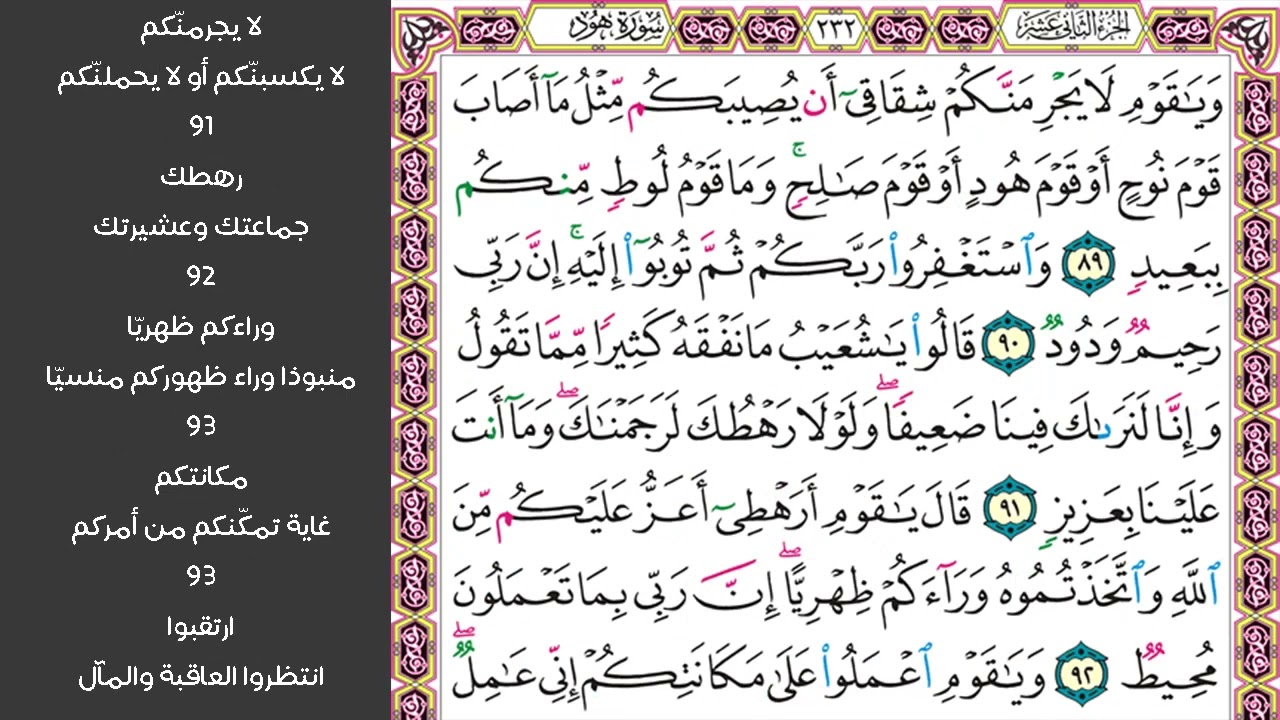 الجزء الثاني عشر
٢٣٢
سورة هود
وَيَٰقَوْمِ لَا يَجْرِمَنَّكُمْ شِقَاقِىٓ أَن يُصِيبَكُم مِّثْلُ مَآ أَصَابَ
قَوْمَ نُوحٍ أَوْ قَوْمَ هُودٍ أَوْ قَوْمَ صَٰلِحٍۚ وَمَا قَوْمُ لُوطٍ مِّنكُم
بِبَعِيدٍ ٨٩ وَٱسْتَغْفِرُوا۟ رَبَّكُمْ ثُمَّ تُوبُوٓا۟ إِلَيْهِۚ إِنَّ رَبِّى
رَحِيمٌ وَدُودٌ ٩٠ قَالُوا۟ يَٰشُعَيْبُ مَا نَفْقَهُ كَثِيرًا مِّمَّا تَقُولُ
وَإِنَّا لَنَرَىٰكَ فِينَا ضَعِيفًاۖ وَلَوْلَا رَهْطُكَ لَرَجَمْنَٰكَۖ وَمَآ أَنتَ
عَلَيْنَا بِعَزِيزٍ ٩١ قَالَ يَٰقَوْمِ أَرَهْطِىٓ أَعَزُّ عَلَيْكُم مِّنَ
ٱللَّهِ وَٱتَّخَذْتُمُوهُ وَرَآءَكُمْ ظِهْرِيًّاۖ إِنَّ رَبِّى بِمَا تَعْمَلُونَ
مُحِيطٌ ٩٢ وَيَٰقَوْمِ ٱعْمَلُوا۟ عَلَىٰ مَكَانَتِكُمْ إِنِّى عَٰمِلٌۖ
لا يجرمنّكم
لا يكسبنّكم أو لا يحملنّكم
91
رهطك
جماعتك وعشيرتك
92
وراءكم ظهريّا
منبوذا وراء ظهوركم منسيّا
93
مكانتكم
غاية تمكّنكم من أمركم
93
ارتقبوا
انتظروا العاقبة والمآل